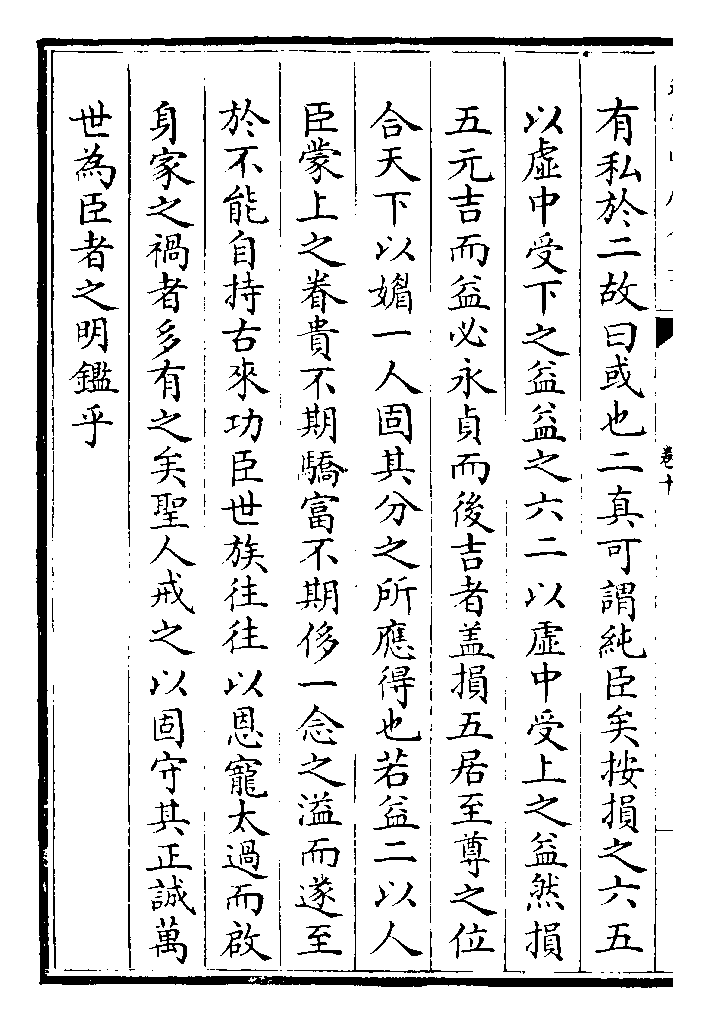 有私於二故曰或也二真可謂純臣矣按損之六五
以虛中受下之益益之六二以虛中受上之益然損
五元吉而益必永貞而後吉者盖損五居至尊之位
合天下以媚一人固其分之所應得也若益二以人
臣蒙上之眷貴不期驕富不期侈一念之溢而遂至
於不能自持古來功臣世族往往以恩寵太過而啟
身家之禍者多有之矣聖人戒之以固守其正誠萬
世為臣者之明鑑乎
卷十